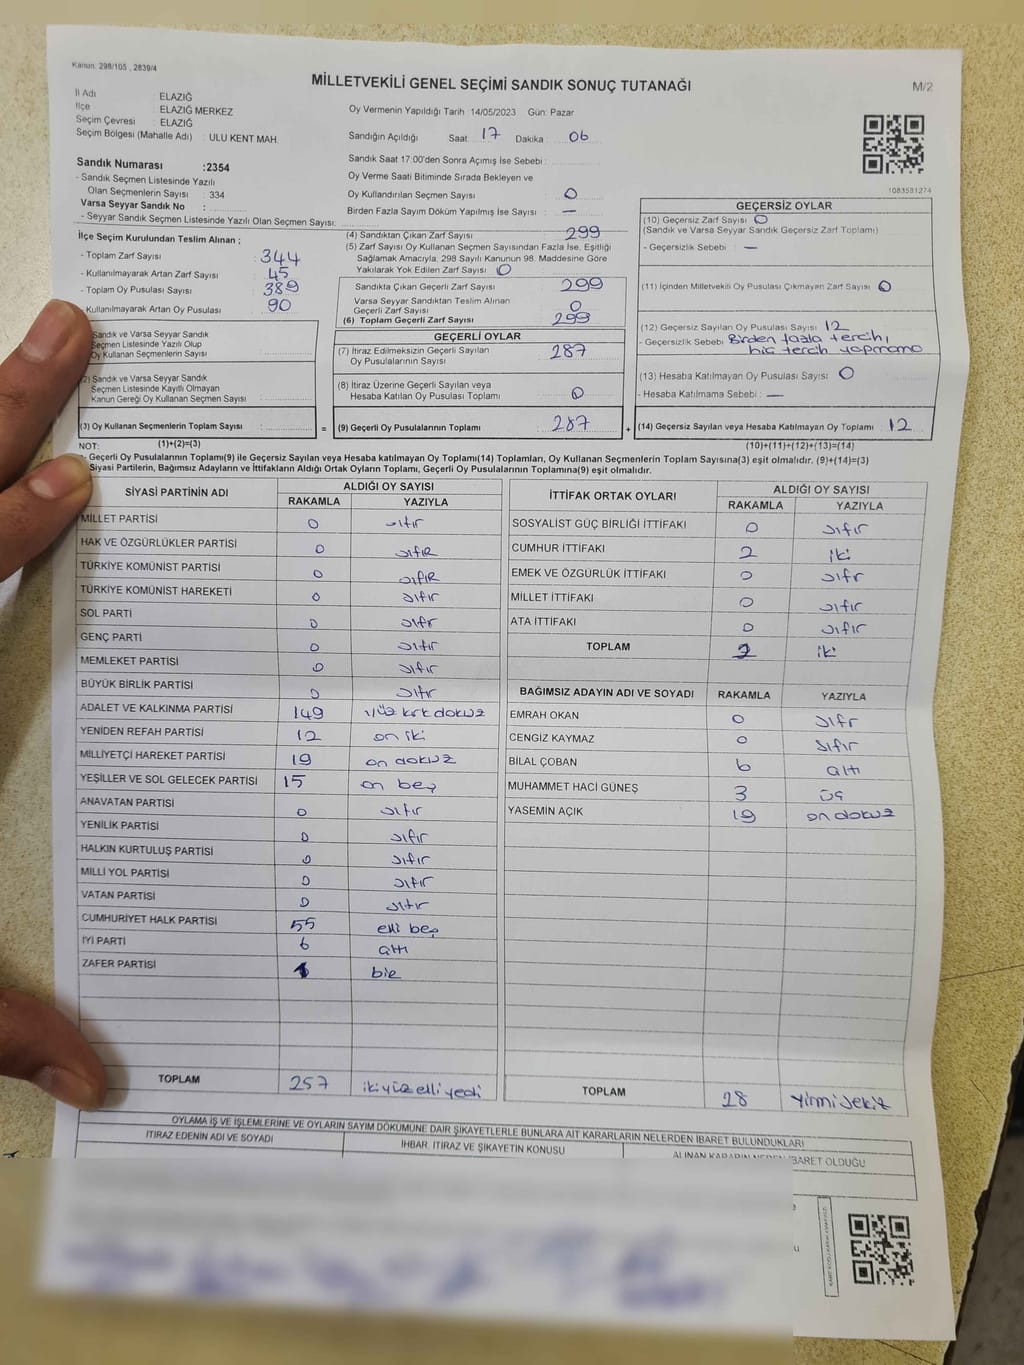 Kanun: 298/105 , 2839/4
MİLLETVEKİLİ GENEL SEÇİMİ SANDIK SONUÇ TUTANAĞI
M/2
İl Adı ELAZIĞ
İlçe ELAZIĞ MERKEZ
Seçim Çevresi : ELAZIĞ
Seçim Bölgesi (Mahalle Adı) : ULU KENT MAH.
Sandık Numarası :2354
- Sandık Seçmen Listesinde Yazılı
Olan Seçmenlerin Sayısı : 334
Varsa Seyyar Sandık No :
- Seyyar Sandık Seçmen Listesinde Yazılı Olan Seçmen Sayısı:
İlçe Seçim Kurulundan Teslim Alınan ;
- Toplam Zarf Sayısı : 344
- Kullanılmayarak Artan Zarf Sayısı : 45
- Toplam Oy Pusulası Sayısı : 389
Kullanılmayarak Artan Oy Pusulası : 90
Sandık ve Varsa Seyyar Sandık
Seçmen Listesinde Yazılı Olup
Oy Kullanan Seçmenlerin Sayısı :
(2) Sandık ve Varsa Seyyar Sandık
Seçmen Listesinde Kayıtlı Olmayan
Kanun Gereği Oy Kullanan Seçmen Sayısı :
(3) Oy Kullanan Seçmenlerin Toplam Sayısı :
Oy Vermenin Yapıldığı Tarih 14/05/2023 Gün: Pazar
Sandığın Açıldığı Saat: 17 Dakika : 06
Sandık Saat 17:00'den Sonra Açımış İse Sebebi :
Oy Verme Saati Bitiminde Sırada Bekleyen ve
Oy Kullandırılan Seçmen Sayısı : 0
Birden Fazla Sayım Döküm Yapılmış İse Sayısı : —
(4) Sandıktan Çıkan Zarf Sayısı : 299
(5) Zarf Sayısı Oy Kullanan Seçmen Sayısından Fazla İse, Eşitliği
Sağlamak Amacıyla; 298 Sayılı Kanunun 98. Maddesine Göre
Yakılarak Yok Edilen Zarf Sayısı : 0
Sandıkta Çıkan Geçerli Zarf Sayısı : 299
Varsa Seyyar Sandıktan Teslim Alınan
Geçerli Zarf Sayısı : 0
(6) Toplam Geçerli Zarf Sayısı : 299
GEÇERLİ OYLAR
(7) İtiraz Edilmeksizin Geçerli Sayılan
Oy Pusulalarının Sayısı : 287
(8) İtiraz Üzerine Geçerli Sayılan veya
Hesaba Katılan Oy Pusulası Toplamı : 0
= (9) Geçerli Oy Pusulalarının Toplamı : 287 +
1083581274
GEÇERSİZ OYLAR
(10) Geçersiz Zarf Sayısı : 0
(Sandık ve Varsa Seyyar Sandık Geçersiz Zarf Toplamı)
- Geçersizlik Sebebi : —
(11) İçinden Milletvekili Oy Pusulası Çıkmayan Zarf Sayısı : 0
(12) Geçersiz Sayılan Oy Pusulası Sayısı : 12
- Geçersizlik Sebebi : Birden fazla tercih,
hiç tercih yapmama
(13) Hesaba Katılmayan Oy Pusulası Sayısı : 0
- Hesaba Katılmama Sebebi : —
(14) Geçersiz Sayılan veya Hesaba Katılmayan Oy Toplamı : 12
NOT: (1)+(2)=(3) (10)+(11)+(12)+(13)=(14)
- Geçerli Oy Pusulalarının Toplamı(9) ile Geçersiz Sayılan veya Hesaba katılmayan Oy Toplamı(14) Toplamları, Oy Kullanan Seçmenlerin Toplam Sayısına(3) eşit olmalıdır. (9)+(14)=(3)
Siyasi Partilerin, Bağımsız Adayların ve İttifakların Aldığı Ortak Oyların Toplamı, Geçerli Oy Pusulalarının Toplamına(9) eşit olmalıdır.
SİYASİ PARTİNİN ADI ALDIĞI OY SAYISI
RAKAMLA YAZIYLA
MİLLET PARTİSİ 0 sıfır
HAK VE ÖZGÜRLÜKLER PARTİSİ 0 sıfır
TÜRKİYE KOMÜNİST PARTİSİ 0 sıfır
TÜRKİYE KOMÜNİST HAREKETİ 0 sıfır
SOL PARTİ 0 sıfır
GENÇ PARTİ 0 sıfır
MEMLEKET PARTİSİ 0 sıfır
BÜYÜK BİRLİK PARTİSİ 0 sıfır
ADALET VE KALKINMA PARTİSİ 149 yüz kırk dokuz
YENİDEN REFAH PARTİSİ 12 on iki
MİLLİYETÇİ HAREKET PARTİSİ 19 on dokuz
YEŞİLLER VE SOL GELECEK PARTİSİ 15 on beş
ANAVATAN PARTİSİ 0 sıfır
YENİLİK PARTİSİ 0 sıfır
HALKIN KURTULUŞ PARTİSİ 0 sıfır
MİLLİ YOL PARTİSİ 0 sıfır
VATAN PARTİSİ 0 sıfır
CUMHURİYET HALK PARTİSİ 55 elli beş
İYİ PARTİ 6 altı
ZAFER PARTİSİ 1 bir
TOPLAM 257 iki yüz elli yedi
İTTİFAK ORTAK OYLARI ALDIĞI OY SAYISI
RAKAMLA YAZIYLA
SOSYALİST GÜÇ BİRLİĞİ İTTİFAKI 0 sıfır
CUMHUR İTTİFAKI 2 iki
EMEK VE ÖZGÜRLÜK İTTİFAKI 0 sıfır
MİLLET İTTİFAKI 0 sıfır
ATA İTTİFAKI 0 sıfır
TOPLAM 2 iki
BAĞIMSIZ ADAYIN ADI VE SOYADI RAKAMLA YAZIYLA
EMRAH OKAN 0 sıfır
CENGİZ KAYMAZ 0 sıfır
BİLAL ÇOBAN 6 altı
MUHAMMET HACİ GÜNEŞ 3 üç
YASEMİN AÇIK 19 on dokuz
TOPLAM 28 yirmi sekiz
OYLAMA İŞ VE İŞLEMLERİNE VE OYLARIN SAYIM DÖKÜMÜNE DAİR ŞİKAYETLERLE BUNLARA AİT KARARLARIN NELERDEN İBARET BULUNDUKLARI
İTİRAZ EDENİN ADI VE SOYADI İHBAR, İTİRAZ VE ŞİKAYETİN KONUSU ALINAN KARARIN NEDEN İBARET OLDUĞU